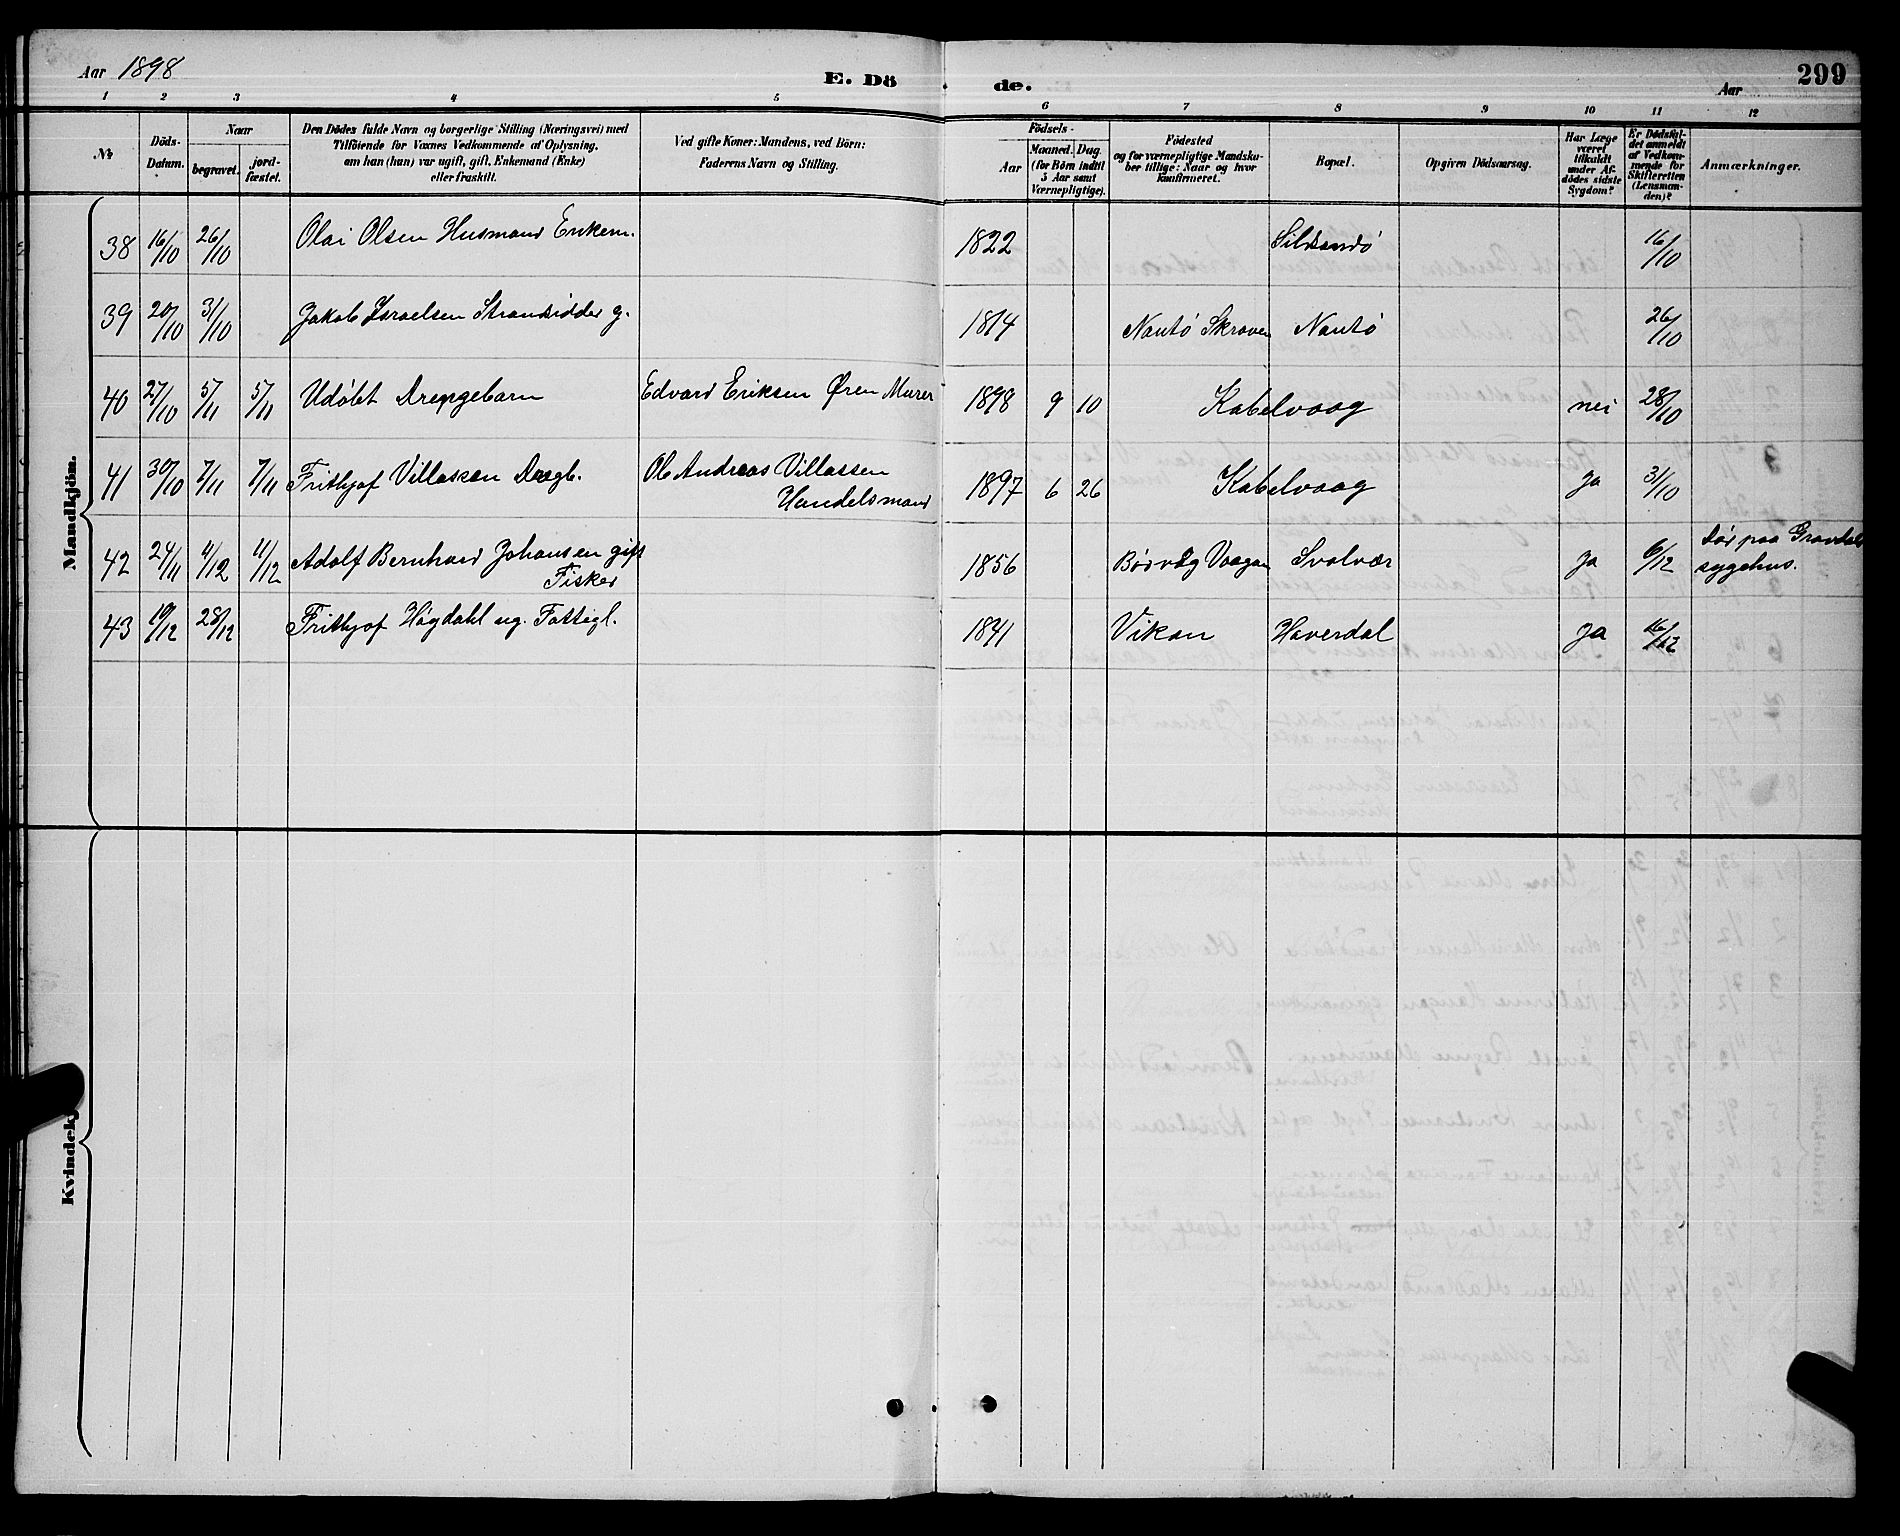 Aar 1898
E. Dö
de.
Aar
299
1 2 3 4 5 6 7 8 9 10 11 12
№
Döds-
Datum.
Naar
begravet.
jord-
fæstet.
Den Dödes fulde Navn og borgerlige Stilling (Næringsvei) med
Tilföiende for Voxnes Vedkommende af Oplysning,
om han (hun) var ugift, gift, Enkemand (Enke)
eller fraskilt.
Ved gifte Koner: Mandens, ved Börn:
Faderens Navn og Stilling.
Födsels-
Aar
Maaned. Dag.
(for Börn indtil
5 Aar samt
Værnepligtige).
Födested
og for værnepligtige Mandska-
ber tillige: Naar og hvor
konfirmeret.
Bopæl.
Opgiven Dödsaarsag.
Har Læge
været
tilkaldt
under Af-
dödes sidste
Sygdom?
Er Dödsfal-
det anmeldt
af Vedkom-
mende for
Skifteretten
(Lensman-
den)?
Anmærkninger.
Mandkjön.
38 16/10 26/10 Olai Olsen Husmand Enkem. 1822 16/10
39 20/10 31/10 Jakob Israelsen Strandsidder g. 1814 Nautö Skroven Nautö 26/10
40 27/10 5/11 5/11 Udöbt Drengebarn Edvard Eriksen Ören Murer 1898 9 10 Kabelvaag nei 28/10
41 30/10 7/11 7/11 Frithjof Villassen Drgb. Ole Andreas Villassen
Handelsmand 1897 6 26 Kabelvaag ja 31/10
42 24/11 11/12 11/12 Adolf Bernhard Johansen gift
Fisker 1856 Vaagan Svolvær ja 6/12 död paa Gravdal
sygehus.
43 19/12 28/12 Frithjof Högdahl ug. Fattigl. 1841 Vikan Haverdal ja
Kvindekj